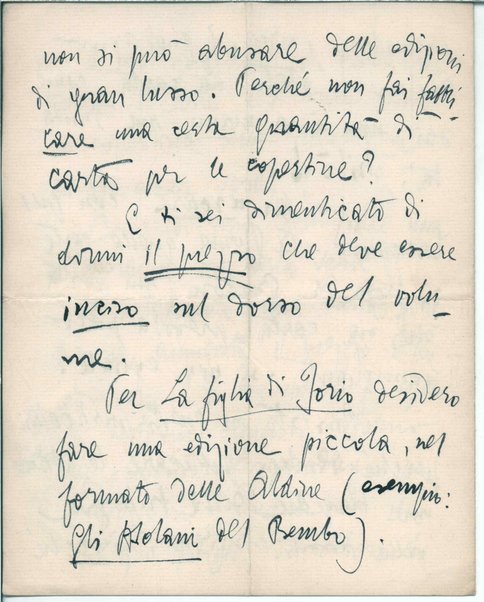 non si può abusare delle edizioni
di gran lusso. Perché non fai fabbri-
care una certa quantità di
carta per le copertine?
E ti sei dimenticato di
dirmi il prezzo che deve essere
inciso sul dorso del volu-
me.
Per La figlia di Jorio desidero
fare una edizione piccola, nel
formato delle Aldine (esempio:
gli Asolani del Bembo).